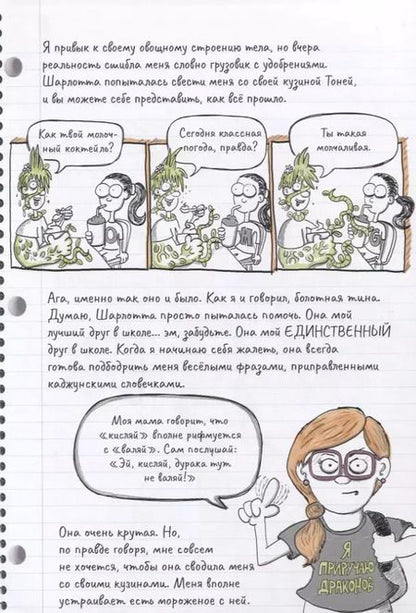 Я привык к своему овощному строению тела, но вчера
реальность сшибла меня словно грузовик с удобрениями.
Шарлотта попыталась свести меня со своей кузиной Тоней,
и вы можете себе представить, как всё прошло.
Как твой молоч-
ный коктейль?
Сегодня классная
погода, правда?
Ты такая
молчаливая.
Ага, именно так оно и было. Как я и говорил, болотная тина.
Думаю, Шарлотта просто пыталась помочь. Она мой
лучший друг в школе... эм, забудьте. Она мой ЕДИНСТВЕННЫЙ
друг в школе. Когда я начинаю себя жалеть, она всегда
готова подбодрить меня весёлыми фразами, приправленными
каджунскими словечками.
Моя мама говорит, что
«кисляй» вполне рифмуется
с «валяй». Сам послушай:
«Эй, кисляй, дурака тут
не валяй!»
Она очень крутая. Но,
по правде говоря, мне совсем
не хочется, чтобы она сводила меня
со своими кузинами. Меня вполне
устраивает есть мороженое с ней.
Я
ПРИРУЧАЮ
ДРАКОНОВ